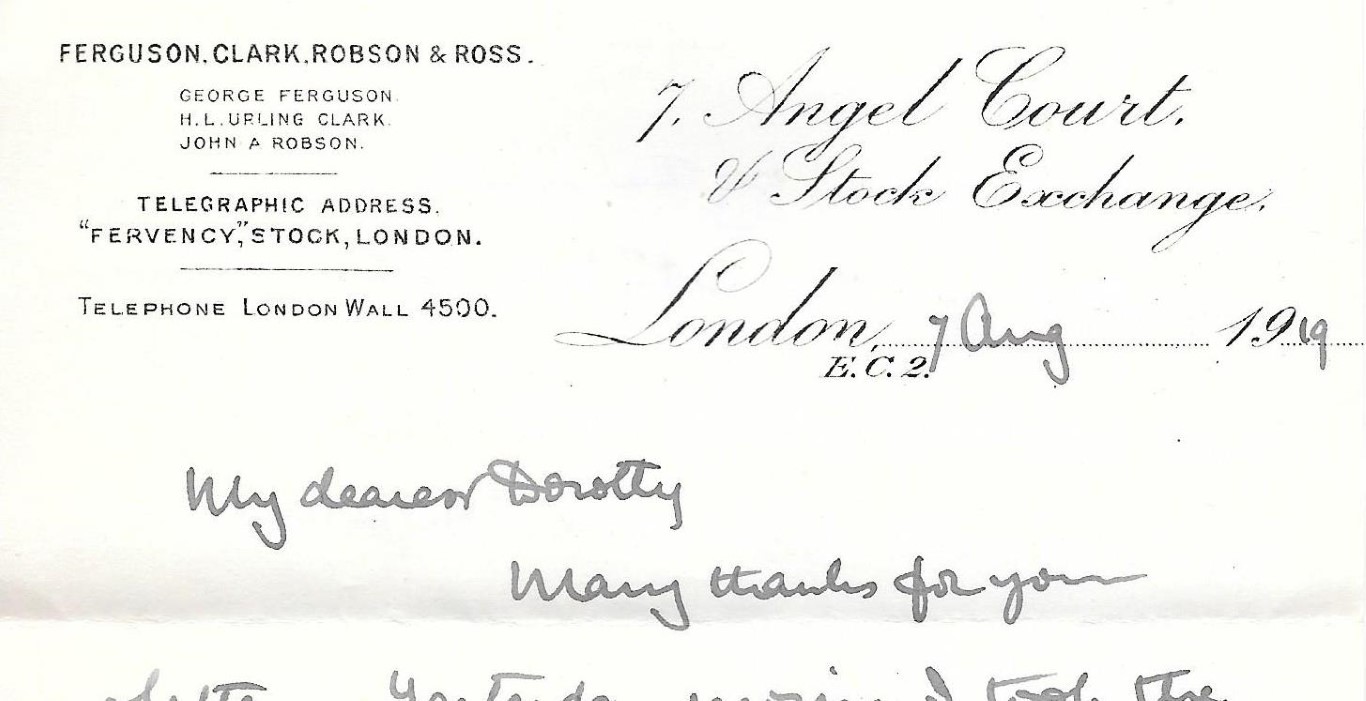 FERGUSON. CLARK. ROBSON & ROSS.
GEORGE FERGUSON.
H. L. URLING CLARK.
JOHN A ROBSON.
TELEGRAPHIC ADDRESS.
"FERVENCY," STOCK, LONDON.
TELEPHONE LONDON WALL 4500.
7, Angel Court.
& Stock Exchange.
London, 7 Aug 1919
E.C. 2.
My dearest Dorothy
Many thanks for your
letter. Yesterday morning I took the